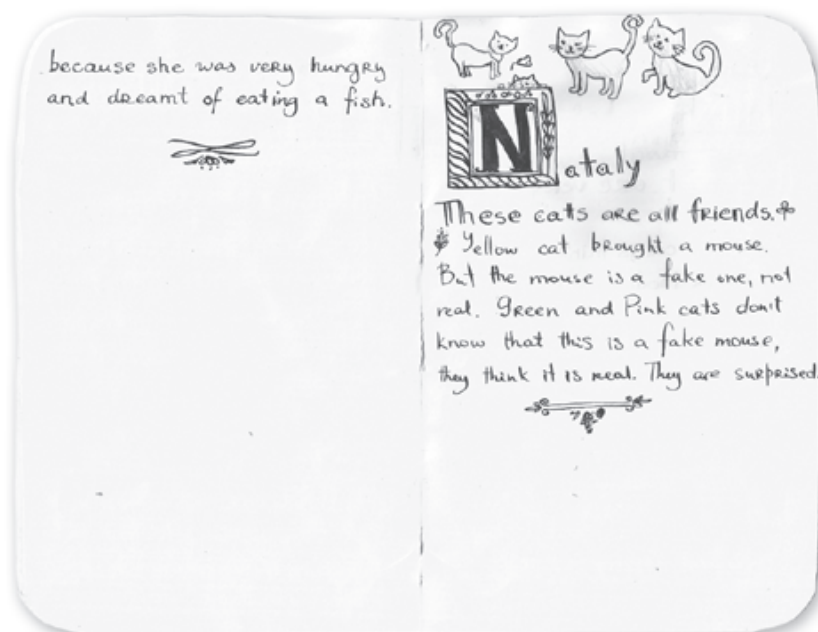 because she was very hungry
and dreamt of eating a fish.
Nataly
These cats are all friends.
Yellow cat brought a mouse.
But the mouse is a fake one, not
real. Green and Pink cats don't
know that this is a fake mouse,
they think it is real. They are surprised.